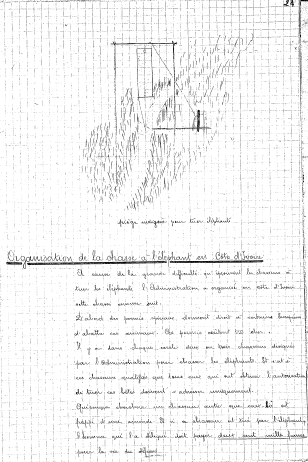 24
piège indigène pour tuer éléphants
Organisation de la chasse à l'éléphant en Côte d'Ivoire
A cause de la grande difficulté qu'éprouvent les chasseurs à
tuer les éléphants l'Administration a organisé en Côte d'Ivoire
cette chasse comme suit.
D'abord des permis spéciaux donnent droit à certains
d'abattre ces animaux. Ces permis coûtent
Il y a dans chaque cercle deux ou trois chasseurs désignés
par l'Administration pour chasser les éléphants. Et c'est à
ces chasseurs qualifiés que tous ceux qui ont obtenu l'autorisation
de tuer ces bêtes doivent s'adresser uniquement.
Quiconque un chasseur autre que ceux-là est
frappé d'une amende. Et si ce chasseur est tué par l'éléphant,
l'homme qui l'a délégué doit payer deux cent mille francs
pour la vie du défunt